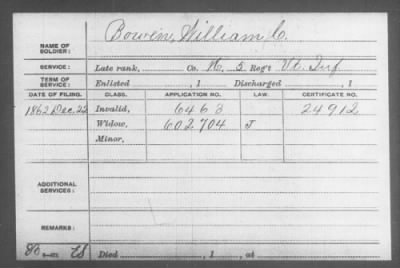 Bowen, William C.
NAME OF SOLDIER:
SERVICE: Late rank, Co. K, 5 Reg't Vt. Inf
TERM OF SERVICE: Enlisted , 1 Discharged , 1
DATE OF FILING. CLASS. APPLICATION NO. LAW. CERTIFICATE NO.
1862 Dec. 22 Invalid, 6463 24912
Widow, 602704 J
Minor,
ADDITIONAL SERVICES:
REMARKS:
Died , 1 , at